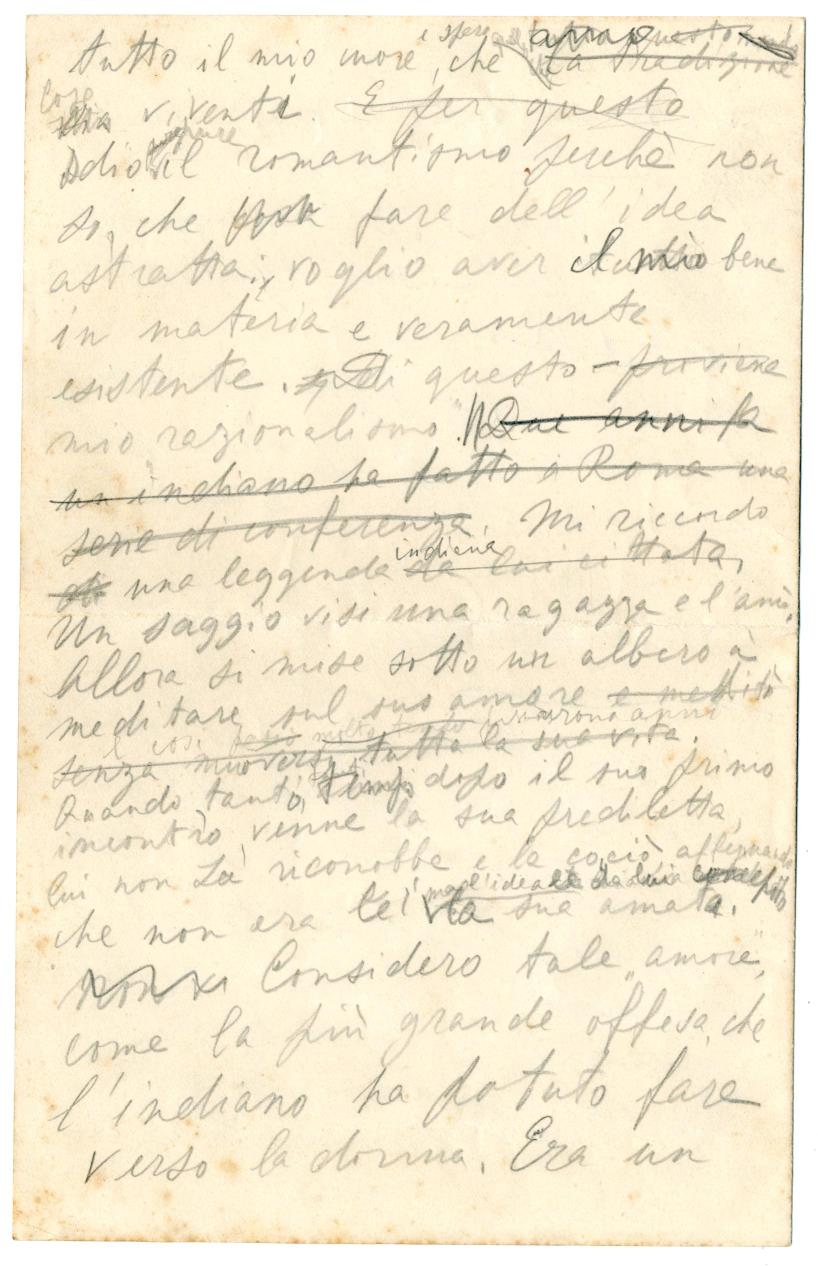 tutto il mio cuore, che la tradizione
viventi. E per questo
Odio il romantismo perchè non
so, che fare dell'idea
astratta; voglio aver il mio bene
in materia e veramente
esistente. Di questo proviene
mio razionalismo. Due anni fa
un indiano ha fatto a Roma una
serie di conferenza. Mi ricordo
indiana
una leggenda da lui cittata,
Un saggio visi una ragazza e l'amò.
Allora si mise sotto un albero à
meditare sul suo amore e meditò
senza muoversi tutta la sua vita.
Quando tanto tempo dopo il suo primo
incontro, venne la sua prediletta,
lui non la riconobbe e la cociò affermando
che non era lei la sua amata.
Considero tale "amore",
come la più grande offesa, che
l'indiano ha potuto fare
verso la donna. Era un